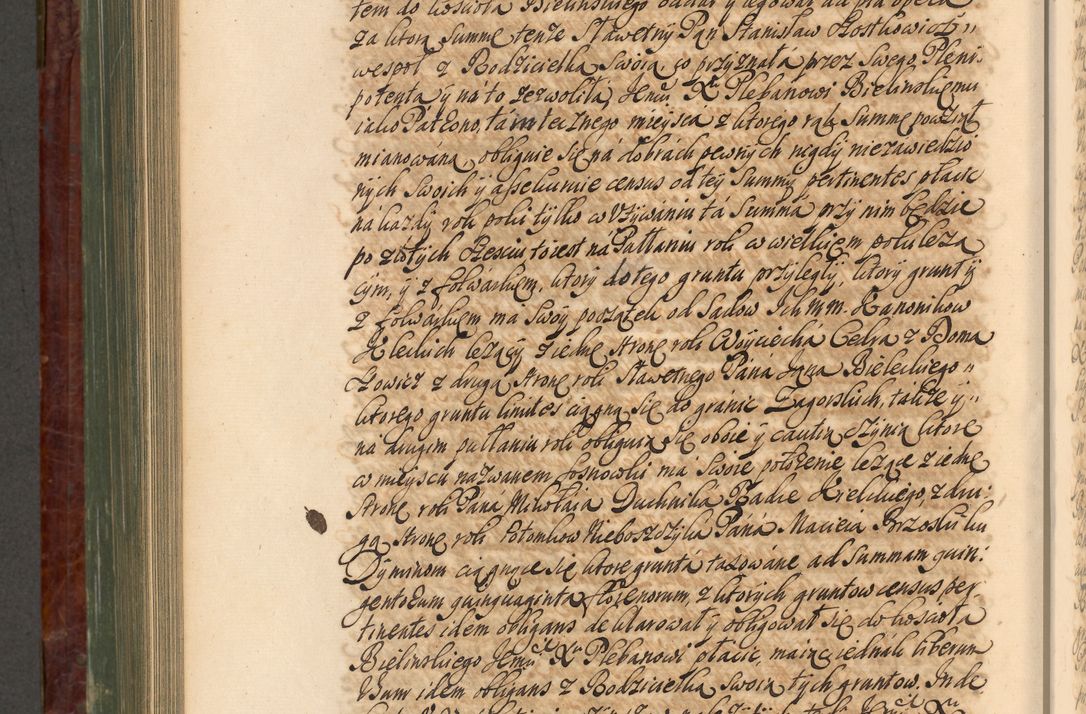 tem do koscioła Bielinskiego oddał y legował ad pia opera
za ktorą Summę tenze Sławetny Pan Stanisław Łostkowicz
wespoł z Rodzicielką Swoią co przyznała przez Swego Pleni,
potenta y na to zezwoliła, Jemu Xu Plebanowi Bielinskiemu
iako Patrono, tamtecznego mieysca z ktorego rąk Summę powziął
mianowaną, obliguie się na dobrach pewnych nigdy niezawiedzio
nych Swoich y assekuruie census od tey Summy pertinentes płacic
na kazdy rok poki tylko w Uzywaniu ta Summa przy nim będzie
po złotych to iest na Pattaniu roli w wielkiem polu leżą
cym, y z folwarkiem, ktory do tego gruntu przyległy, ktory grunt y
z folwarkiem ma Swoy początek od Sadow Ichmm. Kanonikow
Kieleckich lezący z iednę stronę roli Woyciecha Cedra z Doma
szowicz z drugą stronę roli Sławetnego Pana Jana Bieleckiego
ktorego gruntu limites ciągną się do granic Zagorskich, takze y
na drugim pattaniu roli obliguią się oboie y cautią czynią ktore
w mieyscu nazwanem Sosnowki ma Swoie połozenie lezące z iednę
stronę roli Pana Mikołaia Duchnika Radce Kieleckiego, z dru:
gą stronę roli Potomkow Nieboszczyka Pana Macieia Brzoski ku
Dyminom ciągnące się ktore grunta taxowane ad Summam quin:
gentorum quinquaginta florenorum, z ktorych gruntow census per
tinentes idem obligans deklarował y obligował się do koscioła
Bielinskiego Jemu Xu Plebanowi płacic, maiąc iednak liberum
Usum idem obligans z Rodzicielką Swoią tych gruntow. Inde